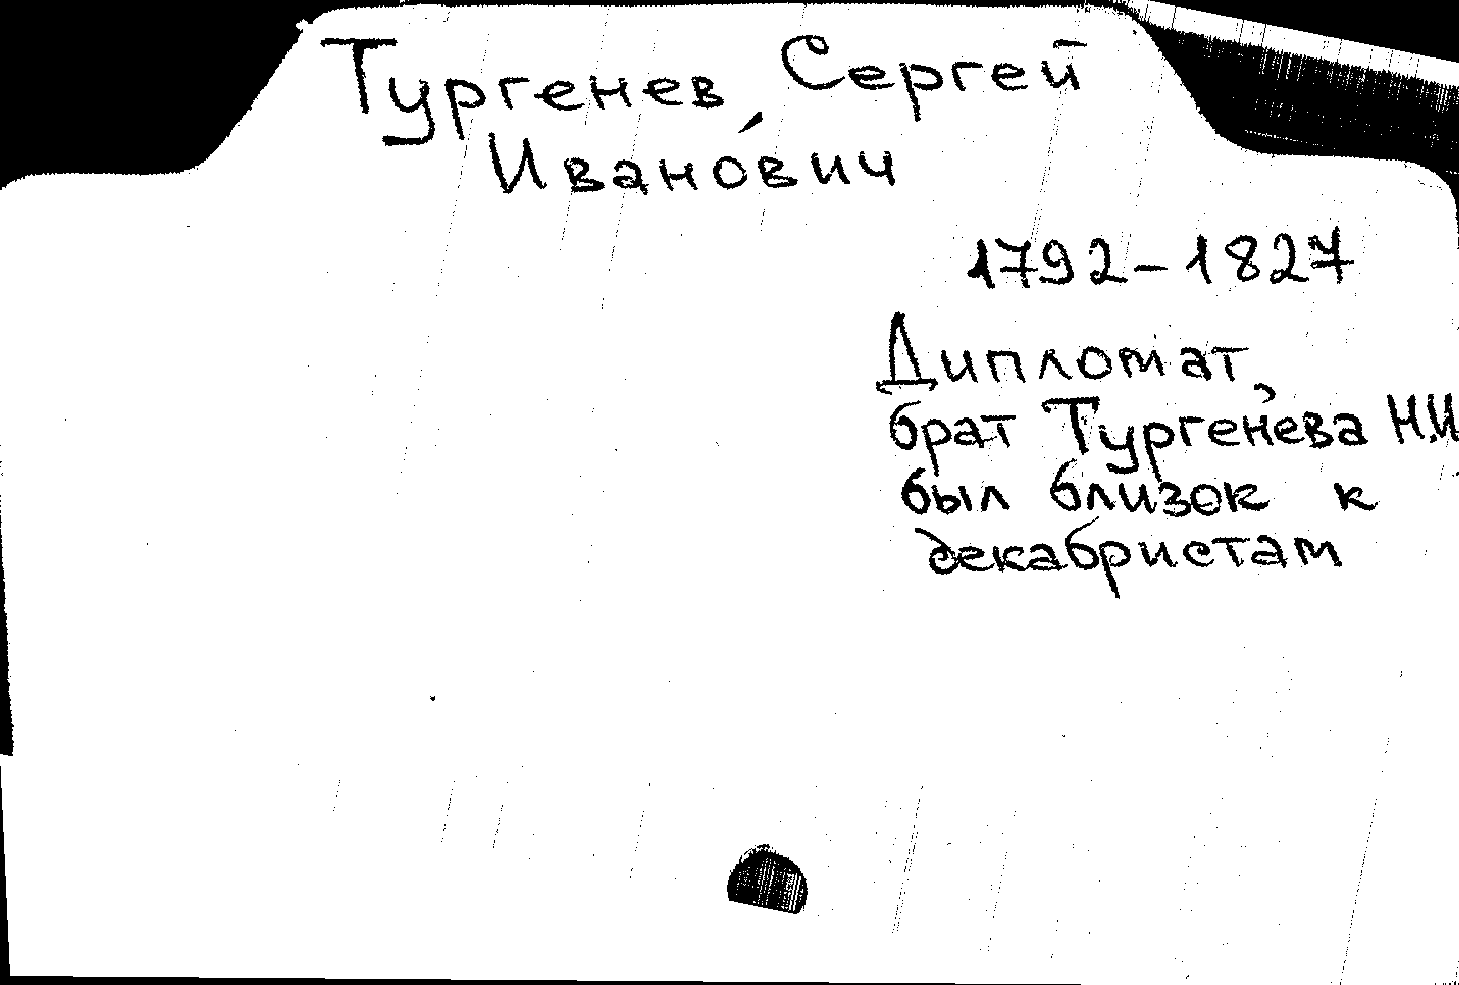 Тургенев, Сергей
Иванович
1792-1827
Дипломат,
брат Тургенева Н.И
был близок к
декабристам